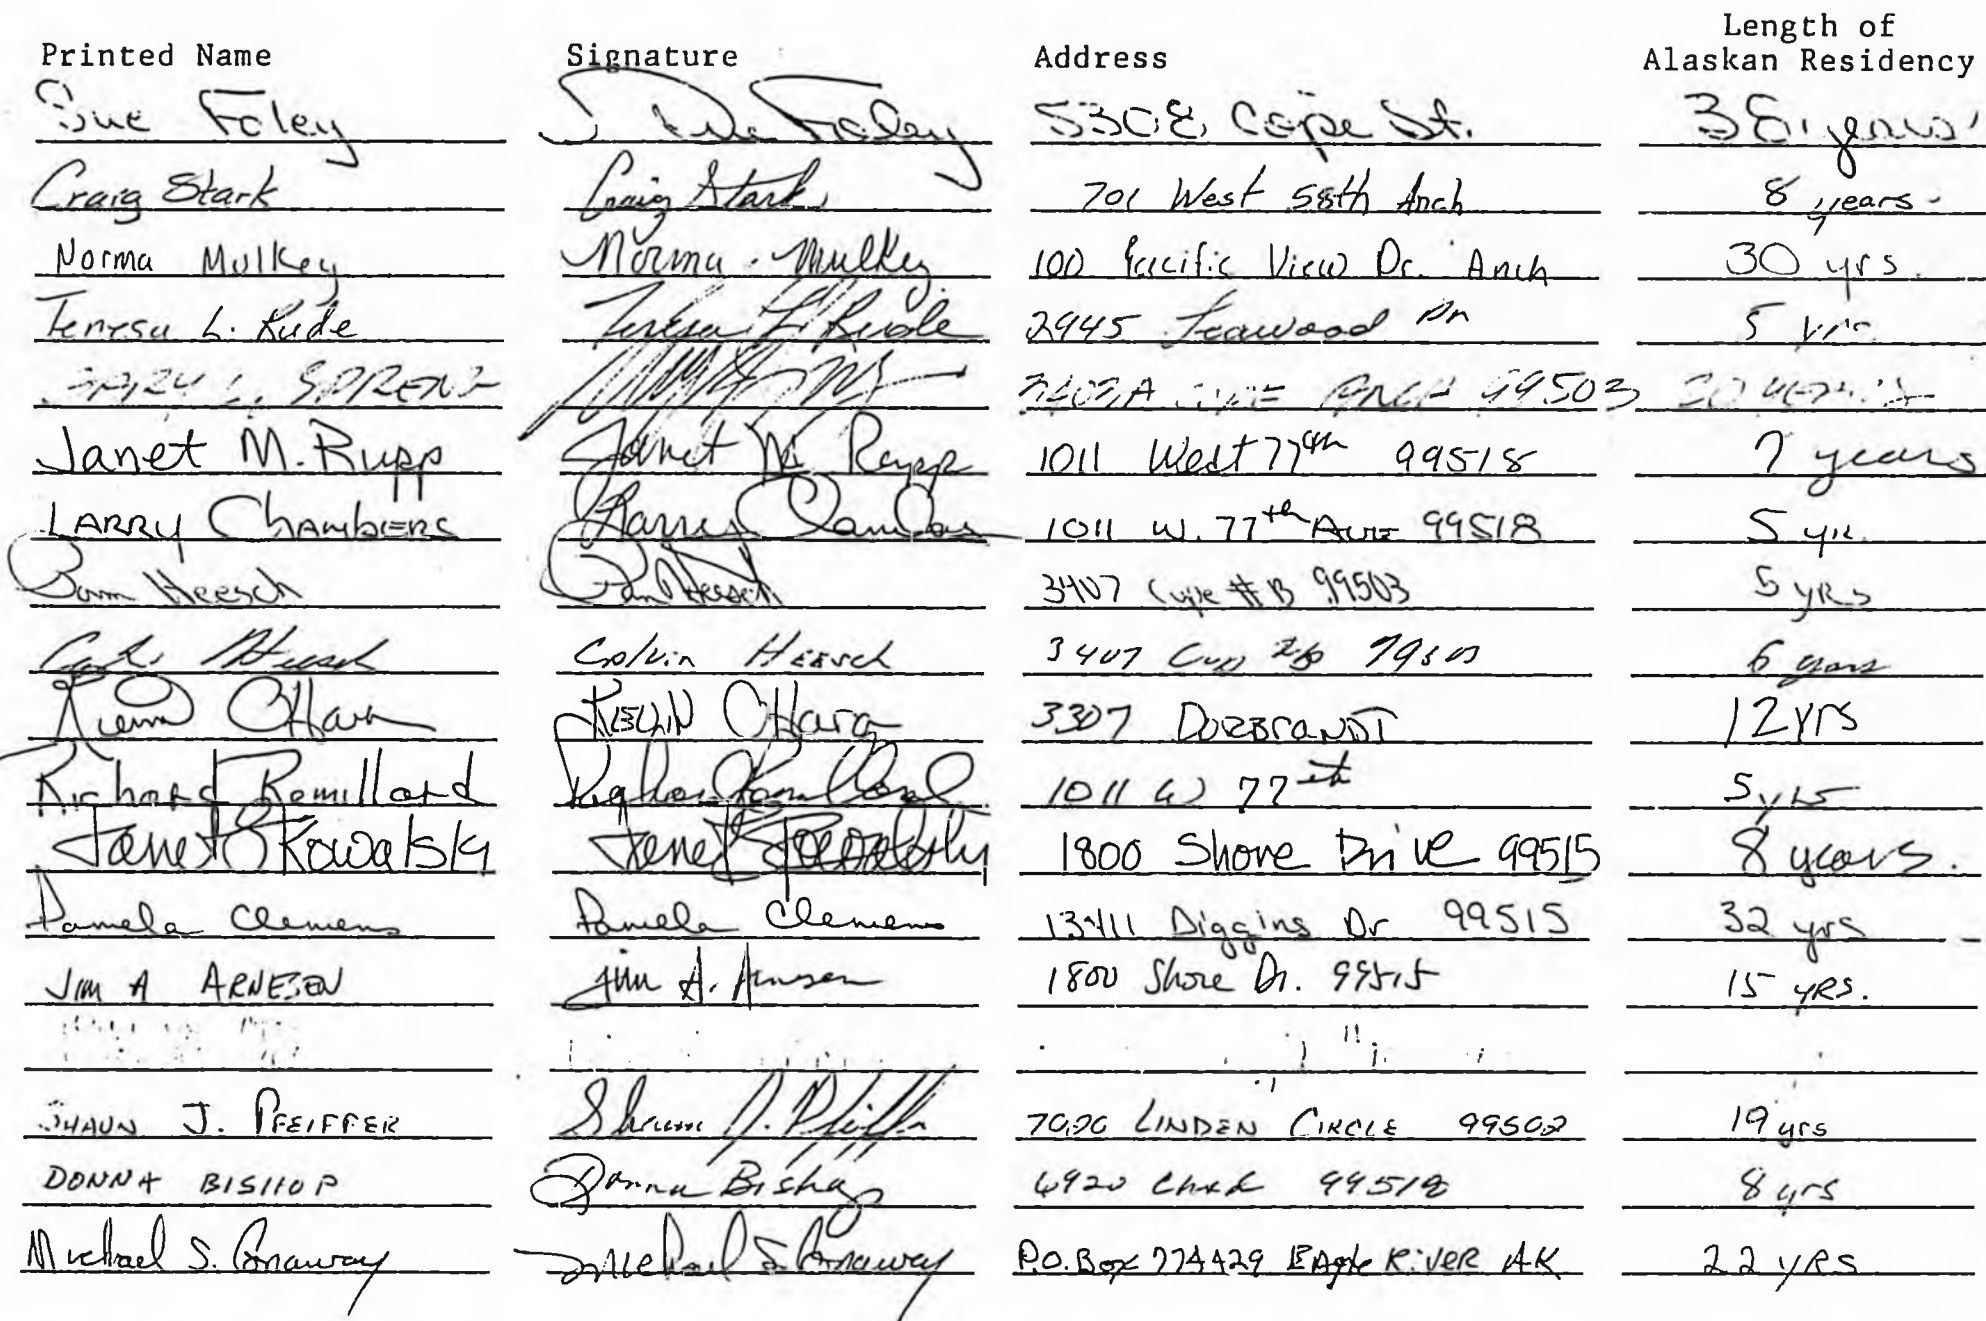 Printed Name Signature Address Length of Alaskan Residency
Sue Foley Sue Foley 5308 Cope St. 38 years
Craig Stark Craig Stark 701 West 58th Anch 8 years
Norma Mulkey Norma Mulkey 100 Pacific View Dr. Anch 30 yrs.
Teresa L. Rude Teresa L. Rude 2945 Leawood Dr 5 yrs
99503 20
Janet M. Rupp Janet M. Rupp 1011 West 77th 99518 7 years
LARRY ChambERS Larry 1011 W. 77th Ave 99518 5 yr.
Pam Heesch Pam Heesch 3407 Cope #B 99503 5 yRs
Heesch Colvin Heesch 3407 6 years
O'Hara KEVIN O'Hara 3307 DORBrANDT 12 yrs
Richard Remillard Remillard 1011 W 77th 5 yrs
Janet Kowalski Janet Kowalski 1800 Shore Drive 99515 8 years.
Pamela Clemens Pamela Clemens 13411 Diggins Dr 99515 32 yrs
JIM A ARNESEN Jim A. Arnesen 1800 Shore Dr. 99515 15 yRS.
SHAUN J. PFEIFFER Shaun J. Pfeiffer 7020 LINDEN CIRCLE 99502 19 yrs
DONNA BISHOP Donna Bishop 6920 99518 8 yrs
Michael S. Conaway Michael S Conaway P.O. Box 774429 EAgle RiVER AK 22 yRS